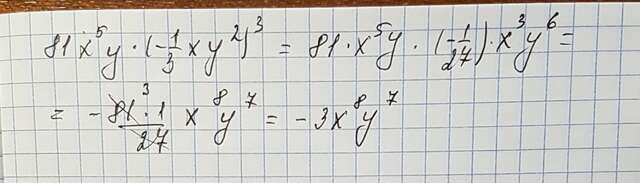 81x⁵y · (-1/3 xy²)³ = 81 · x⁵y · (-1/27) · x³y⁶ =
= - 81 · 1/27 3 x⁸y⁷ = - 3x⁸y⁷